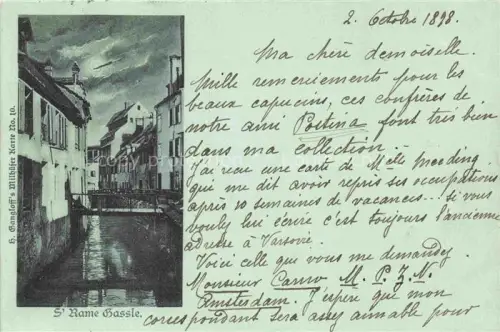 2. Octobre 1898.
Ma chère demoiselle.
Mille remerciements pour les
beaux capucins, ces confrères de
notre ami Postina font très bien
dans ma collection.
J'ai reçu une carte de Melle
qui me dit avoir repris ses occupations
après 10 semaines de vacances... si vous
voulez lui écrire c'est toujours l'ancienne
adresse à Varsovie.
Voici celle que vous me demandez
Monsieur M. P. Z. N.
Amsterdam. J'espère que mon
correspondant sera assez aimable pour
H. Gangloff's Milhüser Karte No. 10.
S' Rame Gassle.